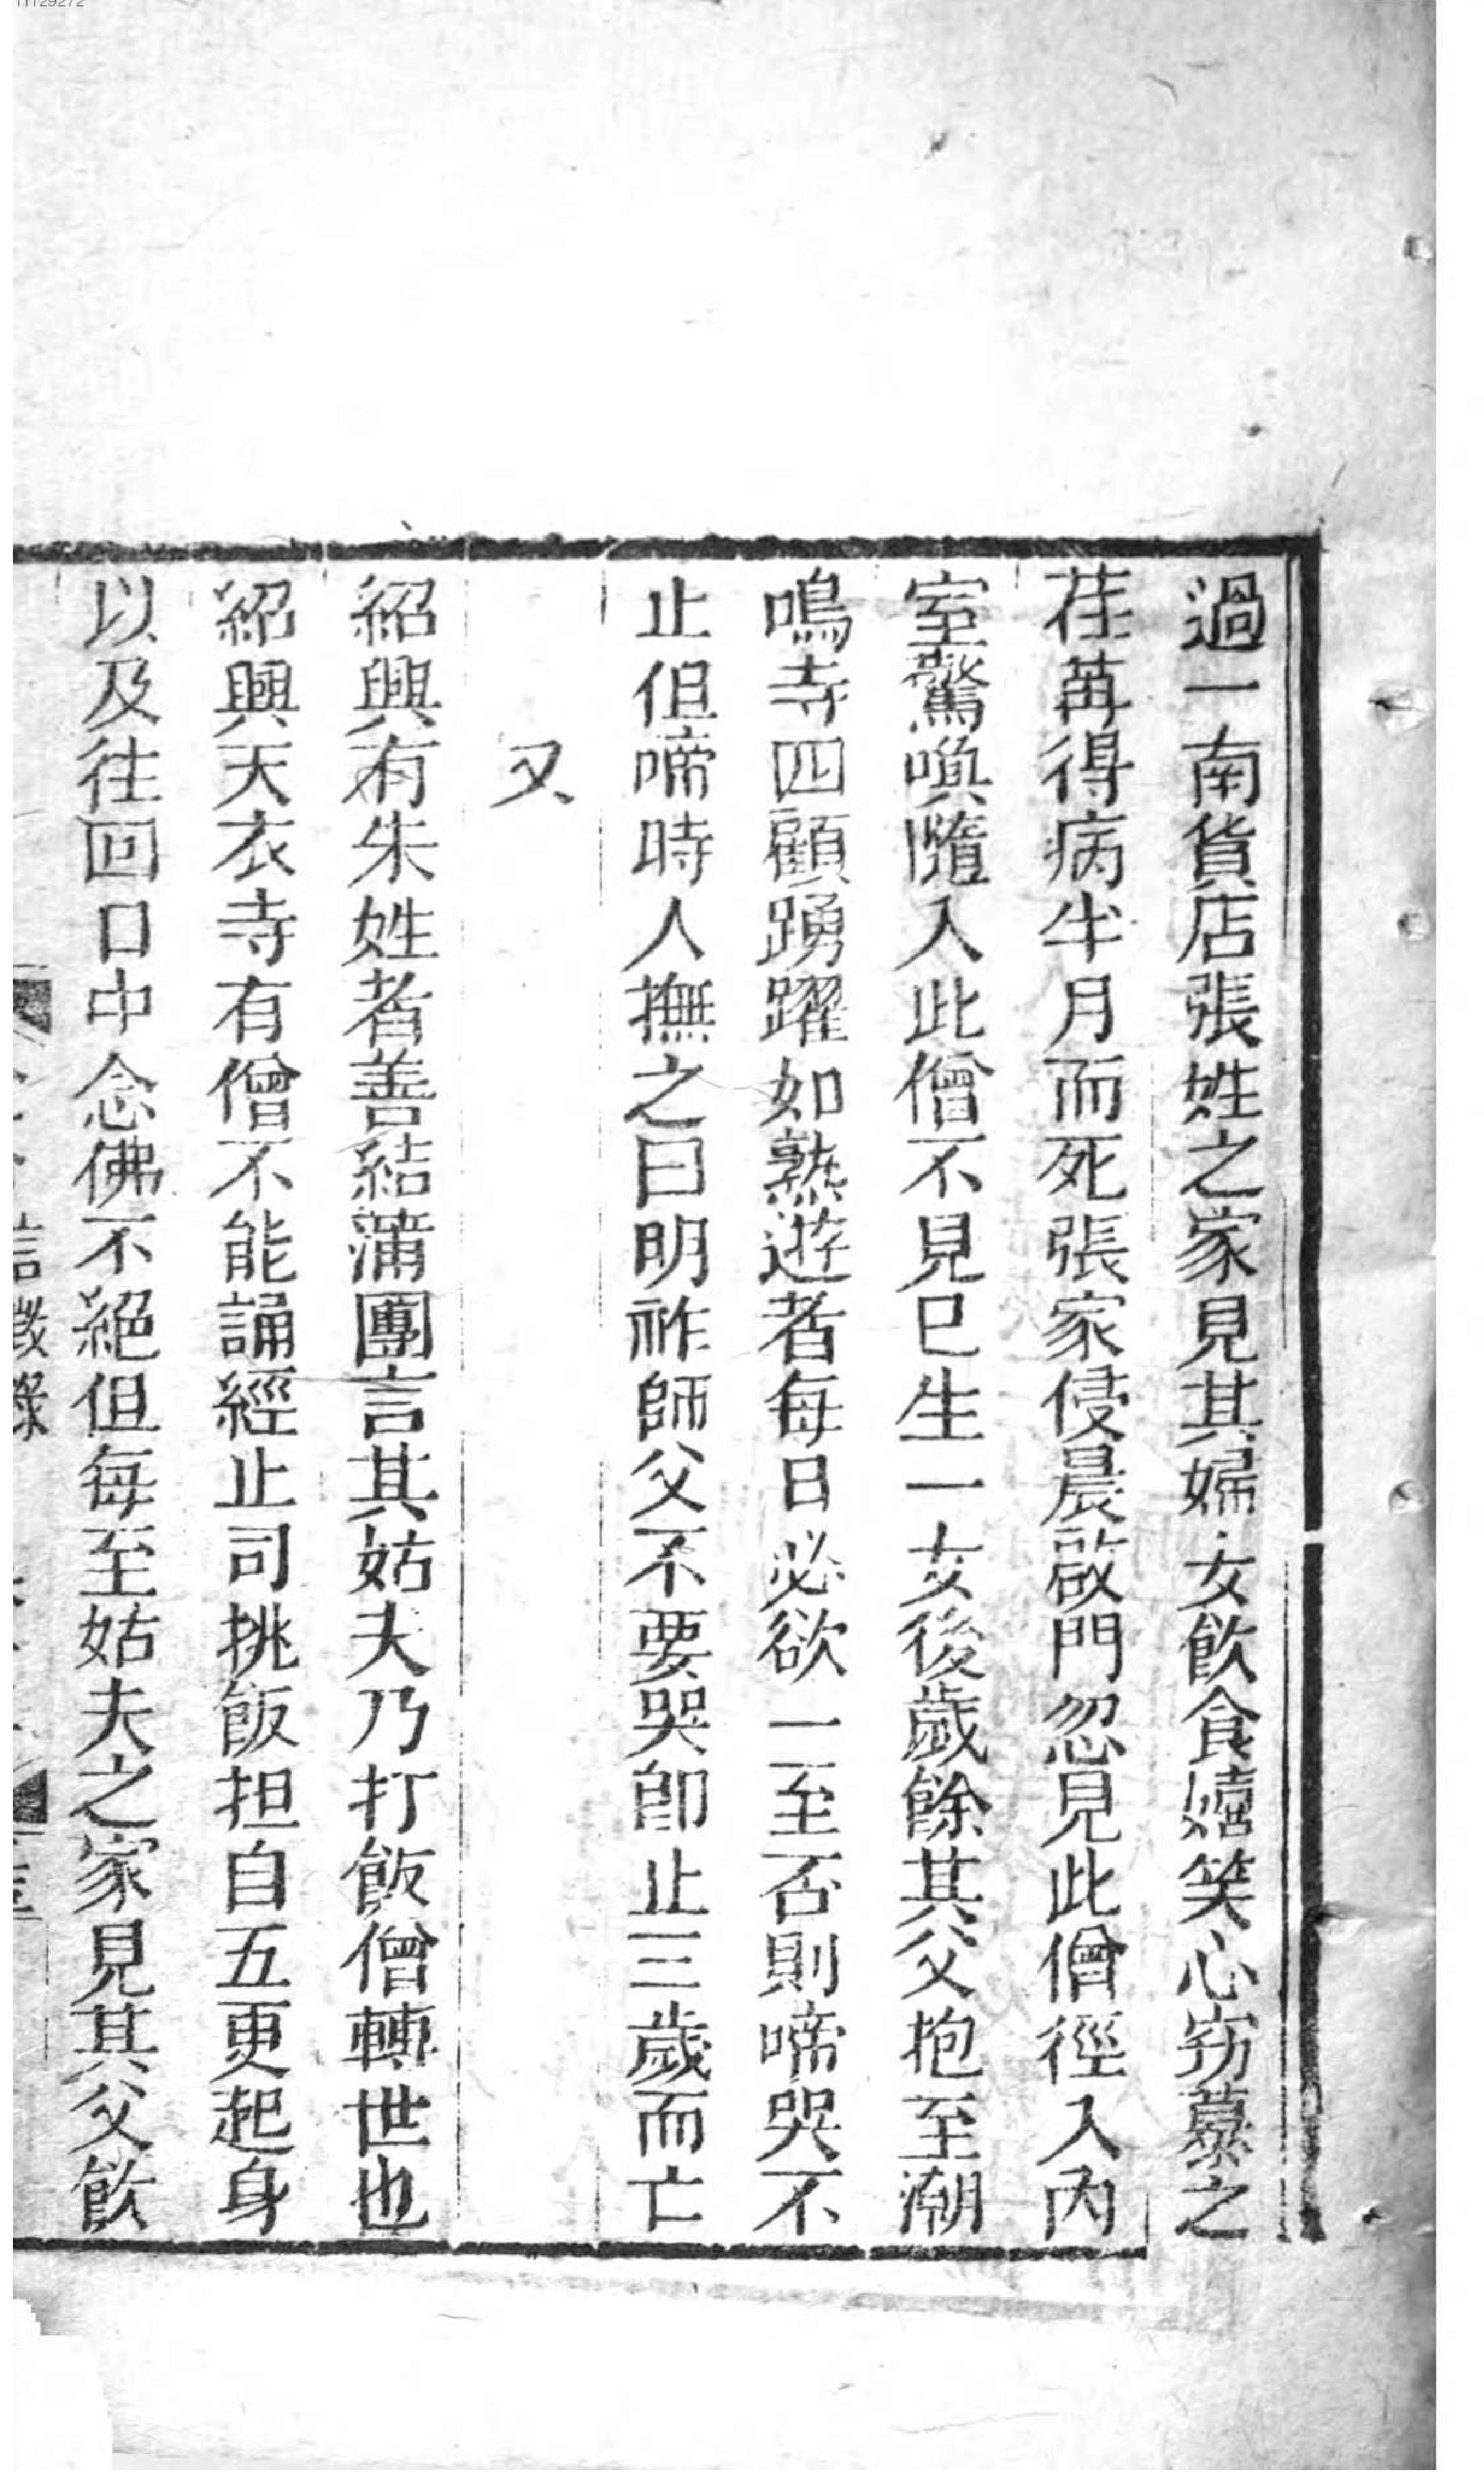 過一南貨店張姓之家見其婦女飲食嬉笑心窃慕之
荏苒得病半月而死張家侵晨啟門忽見此僧徑入內
室驚喚隨入此僧不見已生一女後歲餘其父抱至潮
鳴寺四顧踴躍如熟遊者每日必欲一至否則啼哭不
止但啼時人撫之曰明祚師父不要哭卽止三歲而亡
又
紹興有朱姓者善結蒲團言其姑夫乃打飯僧轉世也
紹興天衣寺有僧不能誦經止司挑飯担自五更起身
以及往回口中念佛不絕但每至姑夫之家見其父飲
信徵錄